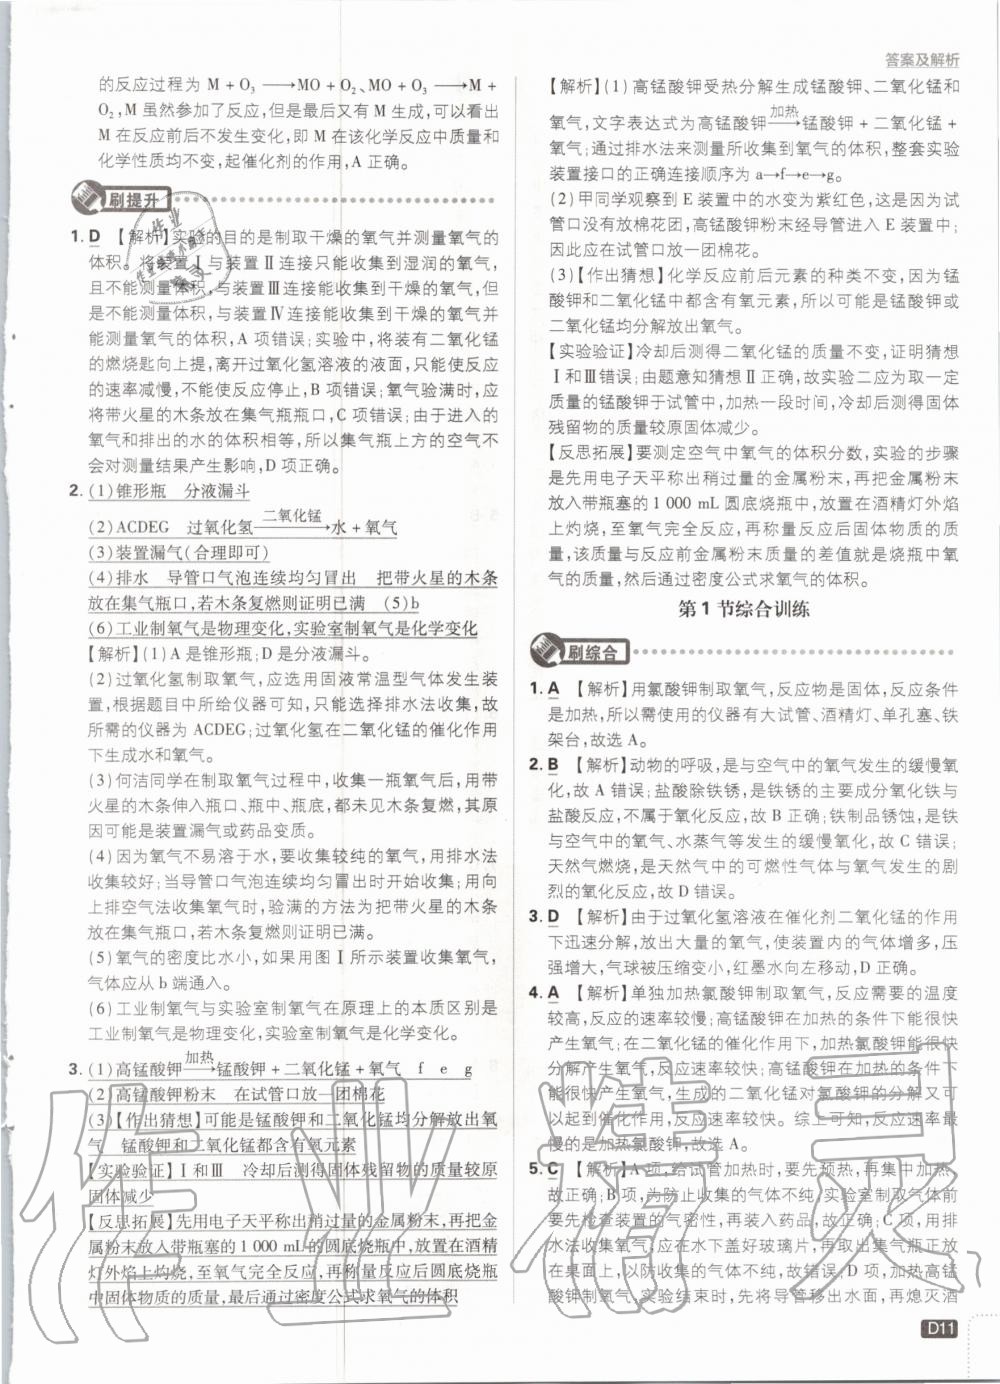 答案及解析
的反应过程为 M + O₃ ⟶MO + O₂、MO + O₃ ⟶M +
O₂,M 虽然参加了反应,但是最后又有 M 生成,可以看出
M 在反应前后不发生变化,即 M 在该化学反应中质量和
化学性质均不变,起催化剂的作用,A 正确。
刷提升
1. D 【解析】实验的目的是制取干燥的氧气并测量氧气的
体积。将装置Ⅰ与装置Ⅱ连接只能收集到湿润的氧气,
且不能测量体积,与装置Ⅲ连接能收集到干燥的氧气,但
是不能测量体积,与装置Ⅳ连接能收集到干燥的氧气并
能测量氧气的体积,A 项错误;实验中,将装有二氧化锰
的燃烧匙向上提,离开过氧化氢溶液的液面,只能使反应
的速率减慢,不能使反应停止,B 项错误;氧气验满时,应
将带火星的木条放在集气瓶瓶口,C 项错误;由于进入的
氧气和排出的水的体积相等,所以集气瓶上方的空气不
会对测量结果产生影响,D 项正确。
2. (1)锥形瓶 分液漏斗
(2)ACDEG 过氧化氢 二氧化锰⟶水 + 氧气
(3)装置漏气(合理即可)
(4)排水 导管口气泡连续均匀冒出 把带火星的木条
放在集气瓶口,若木条复燃则证明已满 (5)b
(6)工业制氧气是物理变化,实验室制氧气是化学变化
【解析】(1)A 是锥形瓶;D 是分液漏斗。
(2)过氧化氢制取氧气,应选用固液常温型气体发生装
置,根据题目中所给仪器可知,只能选择排水法收集,故
所需的仪器为 ACDEG;过氧化氢在二氧化锰的催化作用
下生成水和氧气。
(3)何洁同学在制取氧气过程中,收集一瓶氧气后,用带
火星的木条伸入瓶口、瓶中、瓶底,都未见木条复燃,其原
因可能是装置漏气或药品变质。
(4)因为氧气不易溶于水,要收集较纯的氧气,用排水法
收集较好;当导管口气泡连续均匀冒出时开始收集;用向
上排空气法收集氧气时,验满的方法为把带火星的木条
放在集气瓶口,若木条复燃则证明已满。
(5)氧气的密度比水小,如果用图Ⅰ所示装置收集氧气,
气体应从 b 端通入。
(6)工业制氧气与实验室制氧气在原理上的本质区别是
工业制氧气是物理变化,实验室制氧气是化学变化。
3. (1)高锰酸钾 加热⟶锰酸钾 + 二氧化锰 + 氧气 f e g
(2)高锰酸钾粉末 在试管口放一团棉花
(3)【作出猜想】可能是锰酸钾和二氧化锰均分解放出氧
气 锰酸钾和二氧化锰都含有氧元素
【实验验证】Ⅰ和Ⅲ 冷却后测得固体残留物的质量较原
固体减少
【反思拓展】先用电子天平称出稍过量的金属粉末,再把金
属粉末放入带瓶塞的 1 000 mL 的圆底烧瓶中,放置在酒精
灯外焰上灼烧,至氧气完全反应,再称量反应后圆底烧瓶
中固体物质的质量,最后通过密度公式求氧气的体积
【解析】(1)高锰酸钾受热分解生成锰酸钾、二氧化锰和
氧气,文字表达式为高锰酸钾 加热⟶锰酸钾 + 二氧化锰 +
氧气;通过排水法来测量所收集到氧气的体积,整套实验
装置接口的正确连接顺序为 a→f→e→g。
(2)甲同学观察到 E 装置中的水变为紫红色,这是因为试
管口没有放棉花团,高锰酸钾粉末经导管进入 E 装置中;
因此应在试管口放一团棉花。
(3)【作出猜想】化学反应前后元素的种类不变,因为锰
酸钾和二氧化锰中都含有氧元素,所以可能是锰酸钾或
二氧化锰均分解放出氧气。
【实验验证】冷却后测得二氧化锰的质量不变,证明猜想
Ⅰ和Ⅲ错误;由题意知猜想Ⅱ正确,故实验二应为取一定
质量的锰酸钾于试管中,加热一段时间,冷却后测得固体
残留物的质量较原固体减少。
【反思拓展】要测定空气中氧气的体积分数,实验的步骤
是先用电子天平称出稍过量的金属粉末,再把金属粉末
放入带瓶塞的 1 000 mL 圆底烧瓶中,放置在酒精灯外焰
上灼烧,至氧气完全反应,再称量反应后固体物质的质
量,该质量与反应前金属粉末质量的差值就是烧瓶中氧
气的质量,然后通过密度公式求氧气的体积。
第 1 节综合训练
刷综合
1. A 【解析】用氯酸钾制取氧气,反应物是固体,反应条件
是加热,所以需使用的仪器有大试管、酒精灯、单孔塞、铁
架台,故选 A。
2. B 【解析】动物的呼吸,是与空气中的氧气发生的缓慢氧
化,故 A 错误;盐酸除铁锈,是铁锈的主要成分氧化铁与
盐酸反应,不属于氧化反应,故 B 正确;铁制品锈蚀,是铁
与空气中的氧气、水蒸气等发生的缓慢氧化,故 C 错误;
天然气燃烧,是天然气中的可燃性气体与氧气发生的剧
烈的氧化反应,故 D 错误。
3. D 【解析】由于过氧化氢溶液在催化剂二氧化锰的作用
下迅速分解,放出大量的氧气,使装置内的气体增多,压
强增大,气球被压缩变小,红墨水向左移动,D 正确。
4. A 【解析】单独加热氯酸钾制取氧气,反应需要的温度
较高,反应的速率较慢;高锰酸钾在加热的条件下能很快
产生氧气;在二氧化锰的催化作用下,加热氯酸钾能很快
分解产生氧气,反应速率较快;高锰酸钾在加热的条件下
能很快产生氧气,生成的二氧化锰对氯酸钾的分解又可
以起到催化作用,反应速率较快。综上可知,反应速率最
慢的是加热氯酸钾,故选 A。
5. C 【解析】A 项,给试管加热时,要先预热,再集中加热,
故正确;B 项,为防止收集的气体不纯,实验室制取气体前
要先检查装置的气密性,再装入药品,故正确;C 项,用排
水法收集氧气,应在水下盖好玻璃片,再取出集气瓶正放
在桌面上,以防收集的气体不纯,故错误;D 项,加热高锰
酸钾制氧气,实验结束时,先将导管移出水面,再熄灭酒
D11
作业精灵